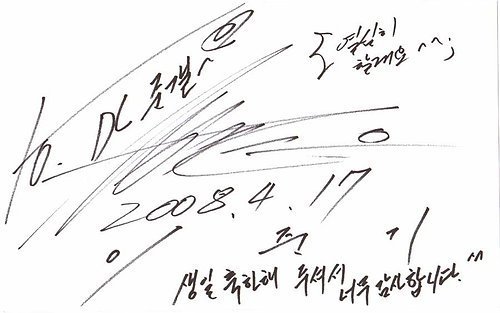 열심히
할래요 ^^;
to. DC 준갤^^
2008. 4. 17
이 준 기
생일 축하해 주셔서 너무 감사합니다.^^